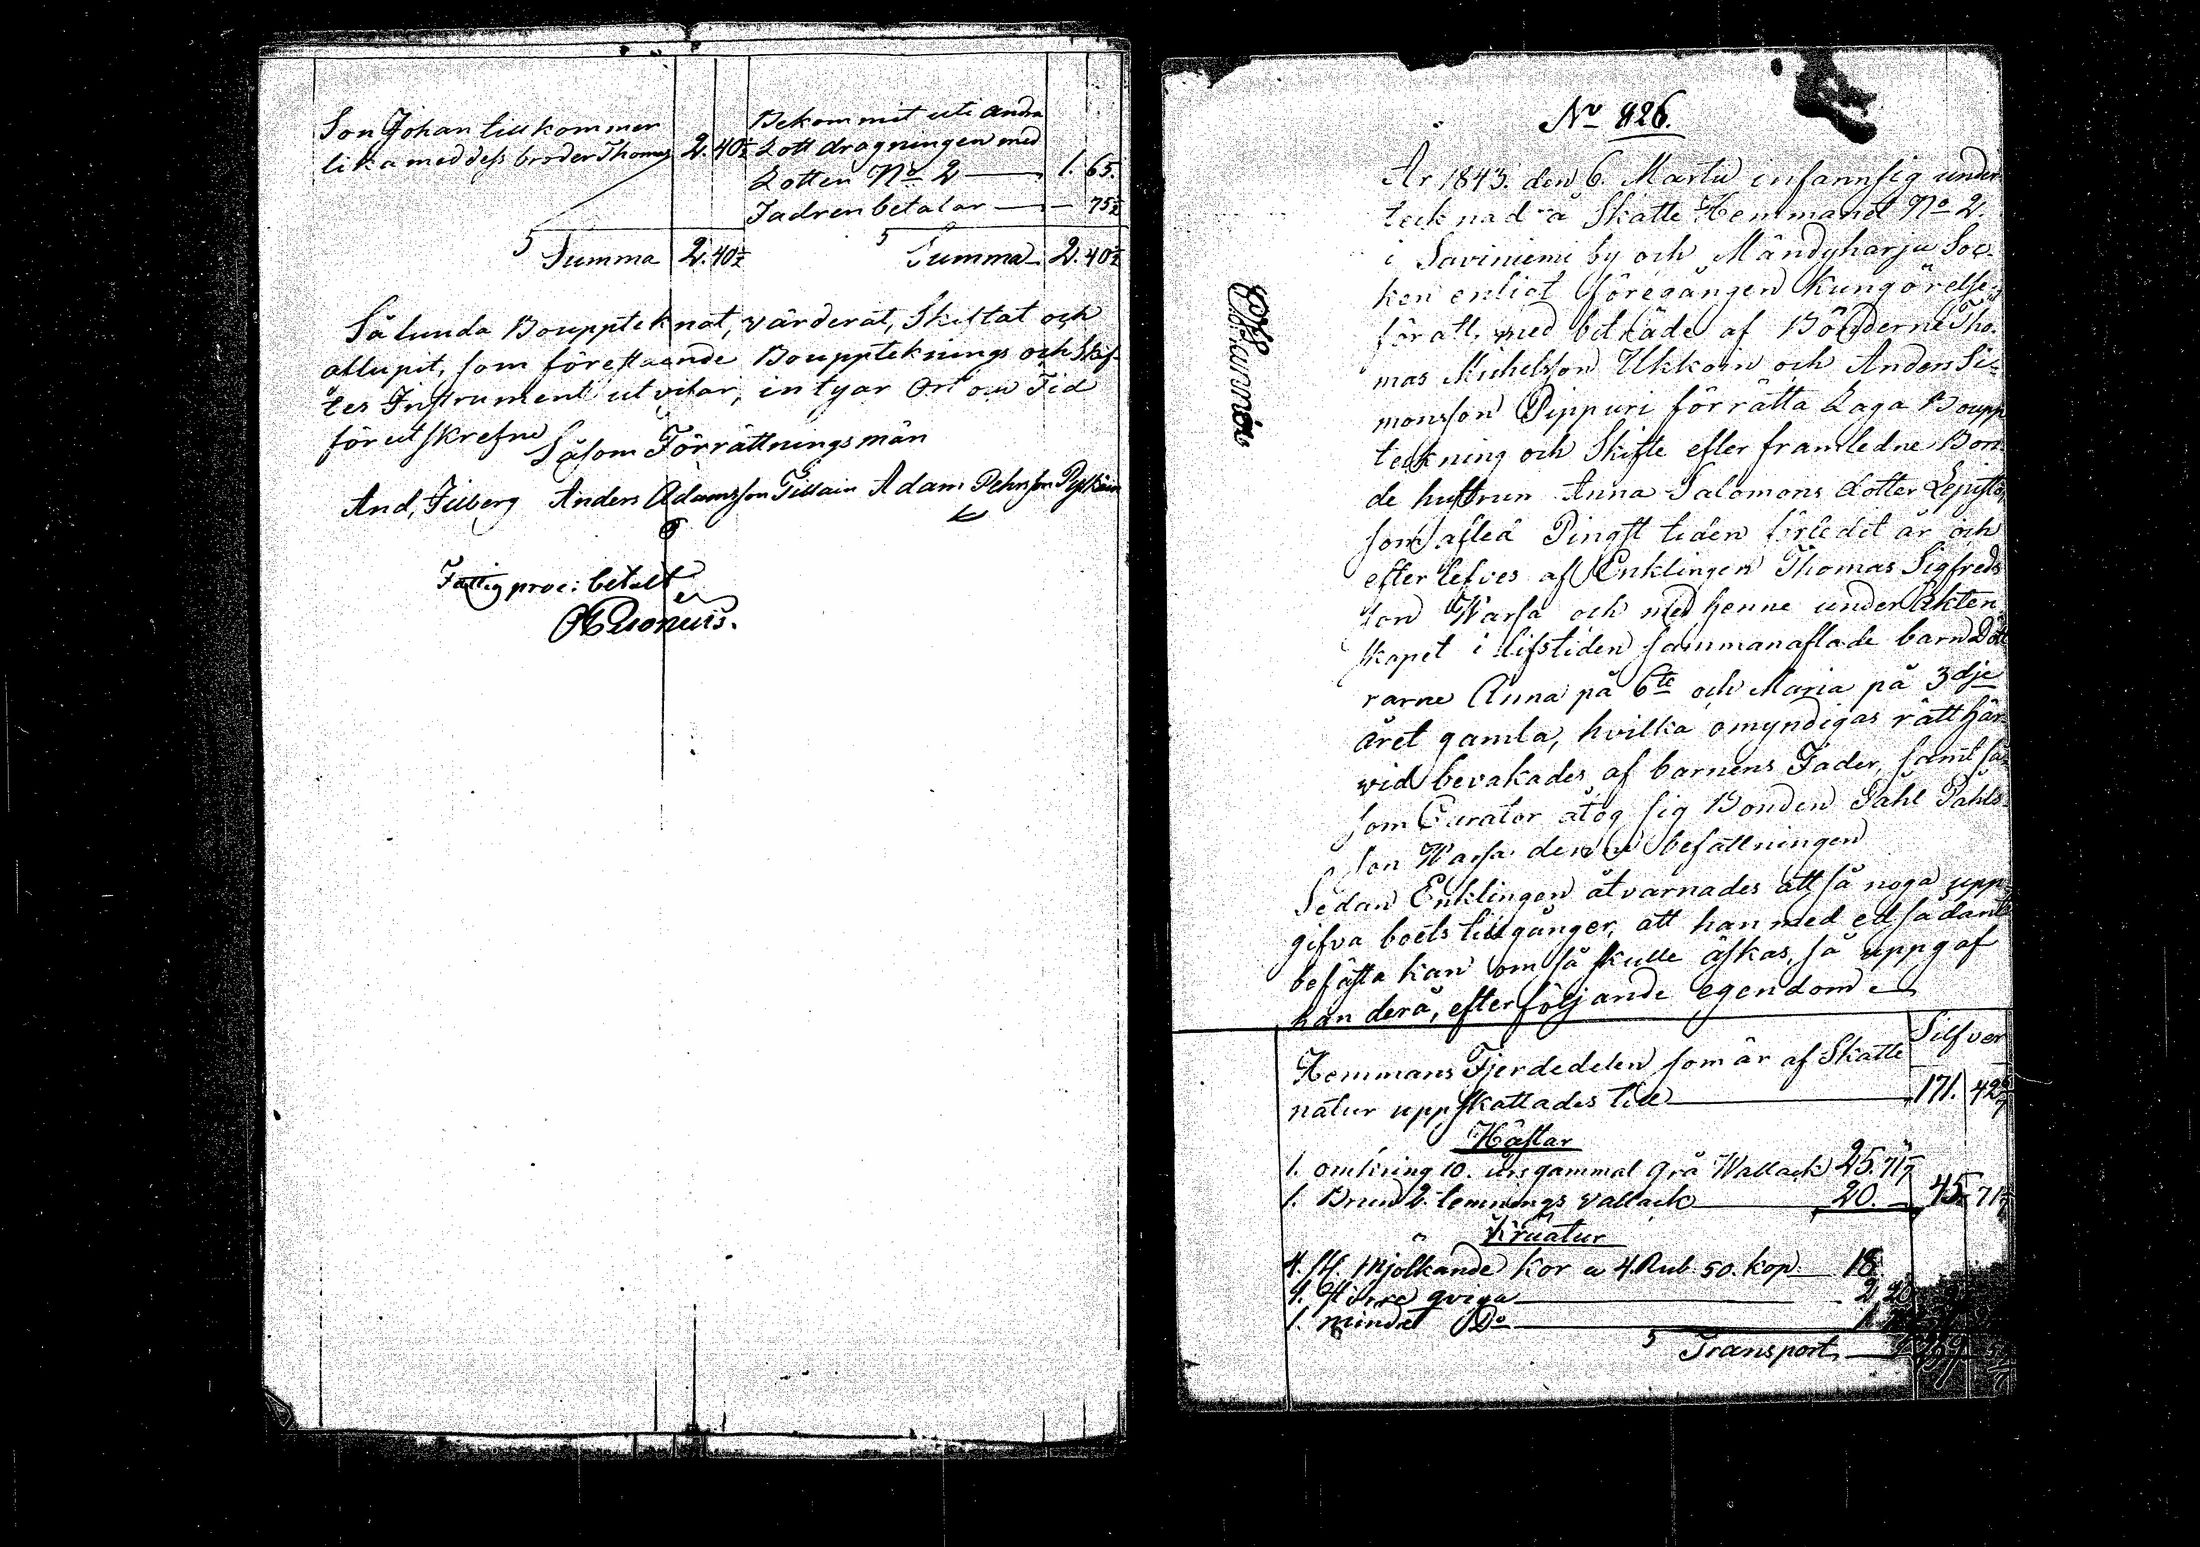 Son Johan tillkommer
lika med dess broder Thomas 2. 40½
Summa 2. 40½
Bekommit uti andra
Lott dragningen med
Lotten No 2 — 1. 65.
Fadren betalar — — 75½
Summa 2. 40½
Sålunda Bouppteknat, värderat, Skiftat och
aflupit, som förestaende Bouppteknings och Skif-
tes Instrument utvisar, intygar Ort och Tid
förutskrefne
Såsom Förrättningsmän
And. Filberg Anders Adamsson Tillain Adam Pehrson
Fattig proc: betalt
No 826.
År 1843. den 6. Martii infann sig under-
tecknad å Skatte Hemmanet No 2.
i Saviniemi by och Mändyharju Soc-
ken enligt föregången Kungörelse,
för att, med biträde af Bönderne Tho-
mas Michelsson Ukkoin och Anders Si-
monsson Pippuri förrätta Laga Boupp-
teckning och Skifte efter framledne Bon-
de hustrun Anna Salomons dotter Lepistö,
som afled Pingst tiden förledit år och
efterlefves af Enklingen Thomas Sigfreds
son Warsa och med henne under Ekten-
skapet i lifstiden sammanaflade barn Dött-
rarne Anna på 6te och Maria på 3dje
året gamla, hvilka omyndigas rätt här-
vid bevakades af barnens Fader, samt så-
som Curator åtog sig Bonden Pahl Pahls-
son Warsa denna befattningen
Sedan Enklingen åtvarnades att så noga upp-
gifva boets tillgånger, att han med ed sådant
befästa kan om så skulle äskas, så uppgaf
han derå, efterföljande egendom
Silfver
Hemmans Fjerdedelen som är af Skatte
natur uppskattades till — 171. 42 6/7
Hästar
1. omkring 10. års gammal grå Wallack 25. 71 3/7
1. Brun 2. lemnings vallack — 20. — 45. 71 3/7
Kreatur
4. st. Mjölkande kor a 4. Rub. 50. kop — 18
1. större qviga — 2 20
1. mindre Do — 1
Transport